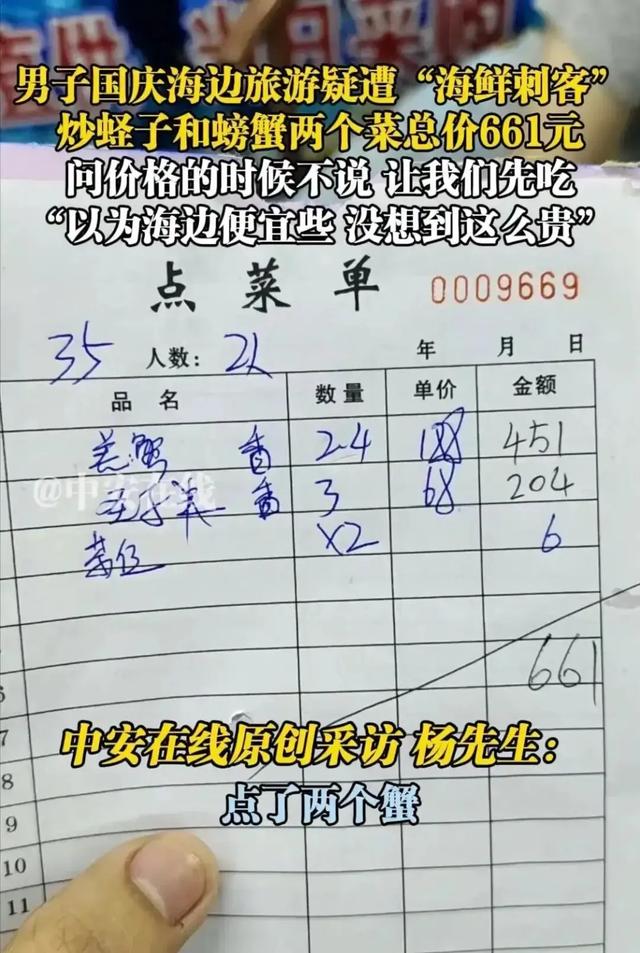 男子国庆海边旅游疑遭“海鲜刺客”
炒蛏子和螃蟹两个菜总价661元
问价格的时候不说 让我们先吃
“以为海边便宜些 没想到这么贵”
点菜单 0009669
35 人数: 2人 年 月 日
品名 数量 单价 金额
蟹 香 2.4 188 451
香 3 68 204
茶位 x2 6
661
@中安在线
6
7
中安在线原创采访 杨先生：
8
点了两个蟹
9
10
11